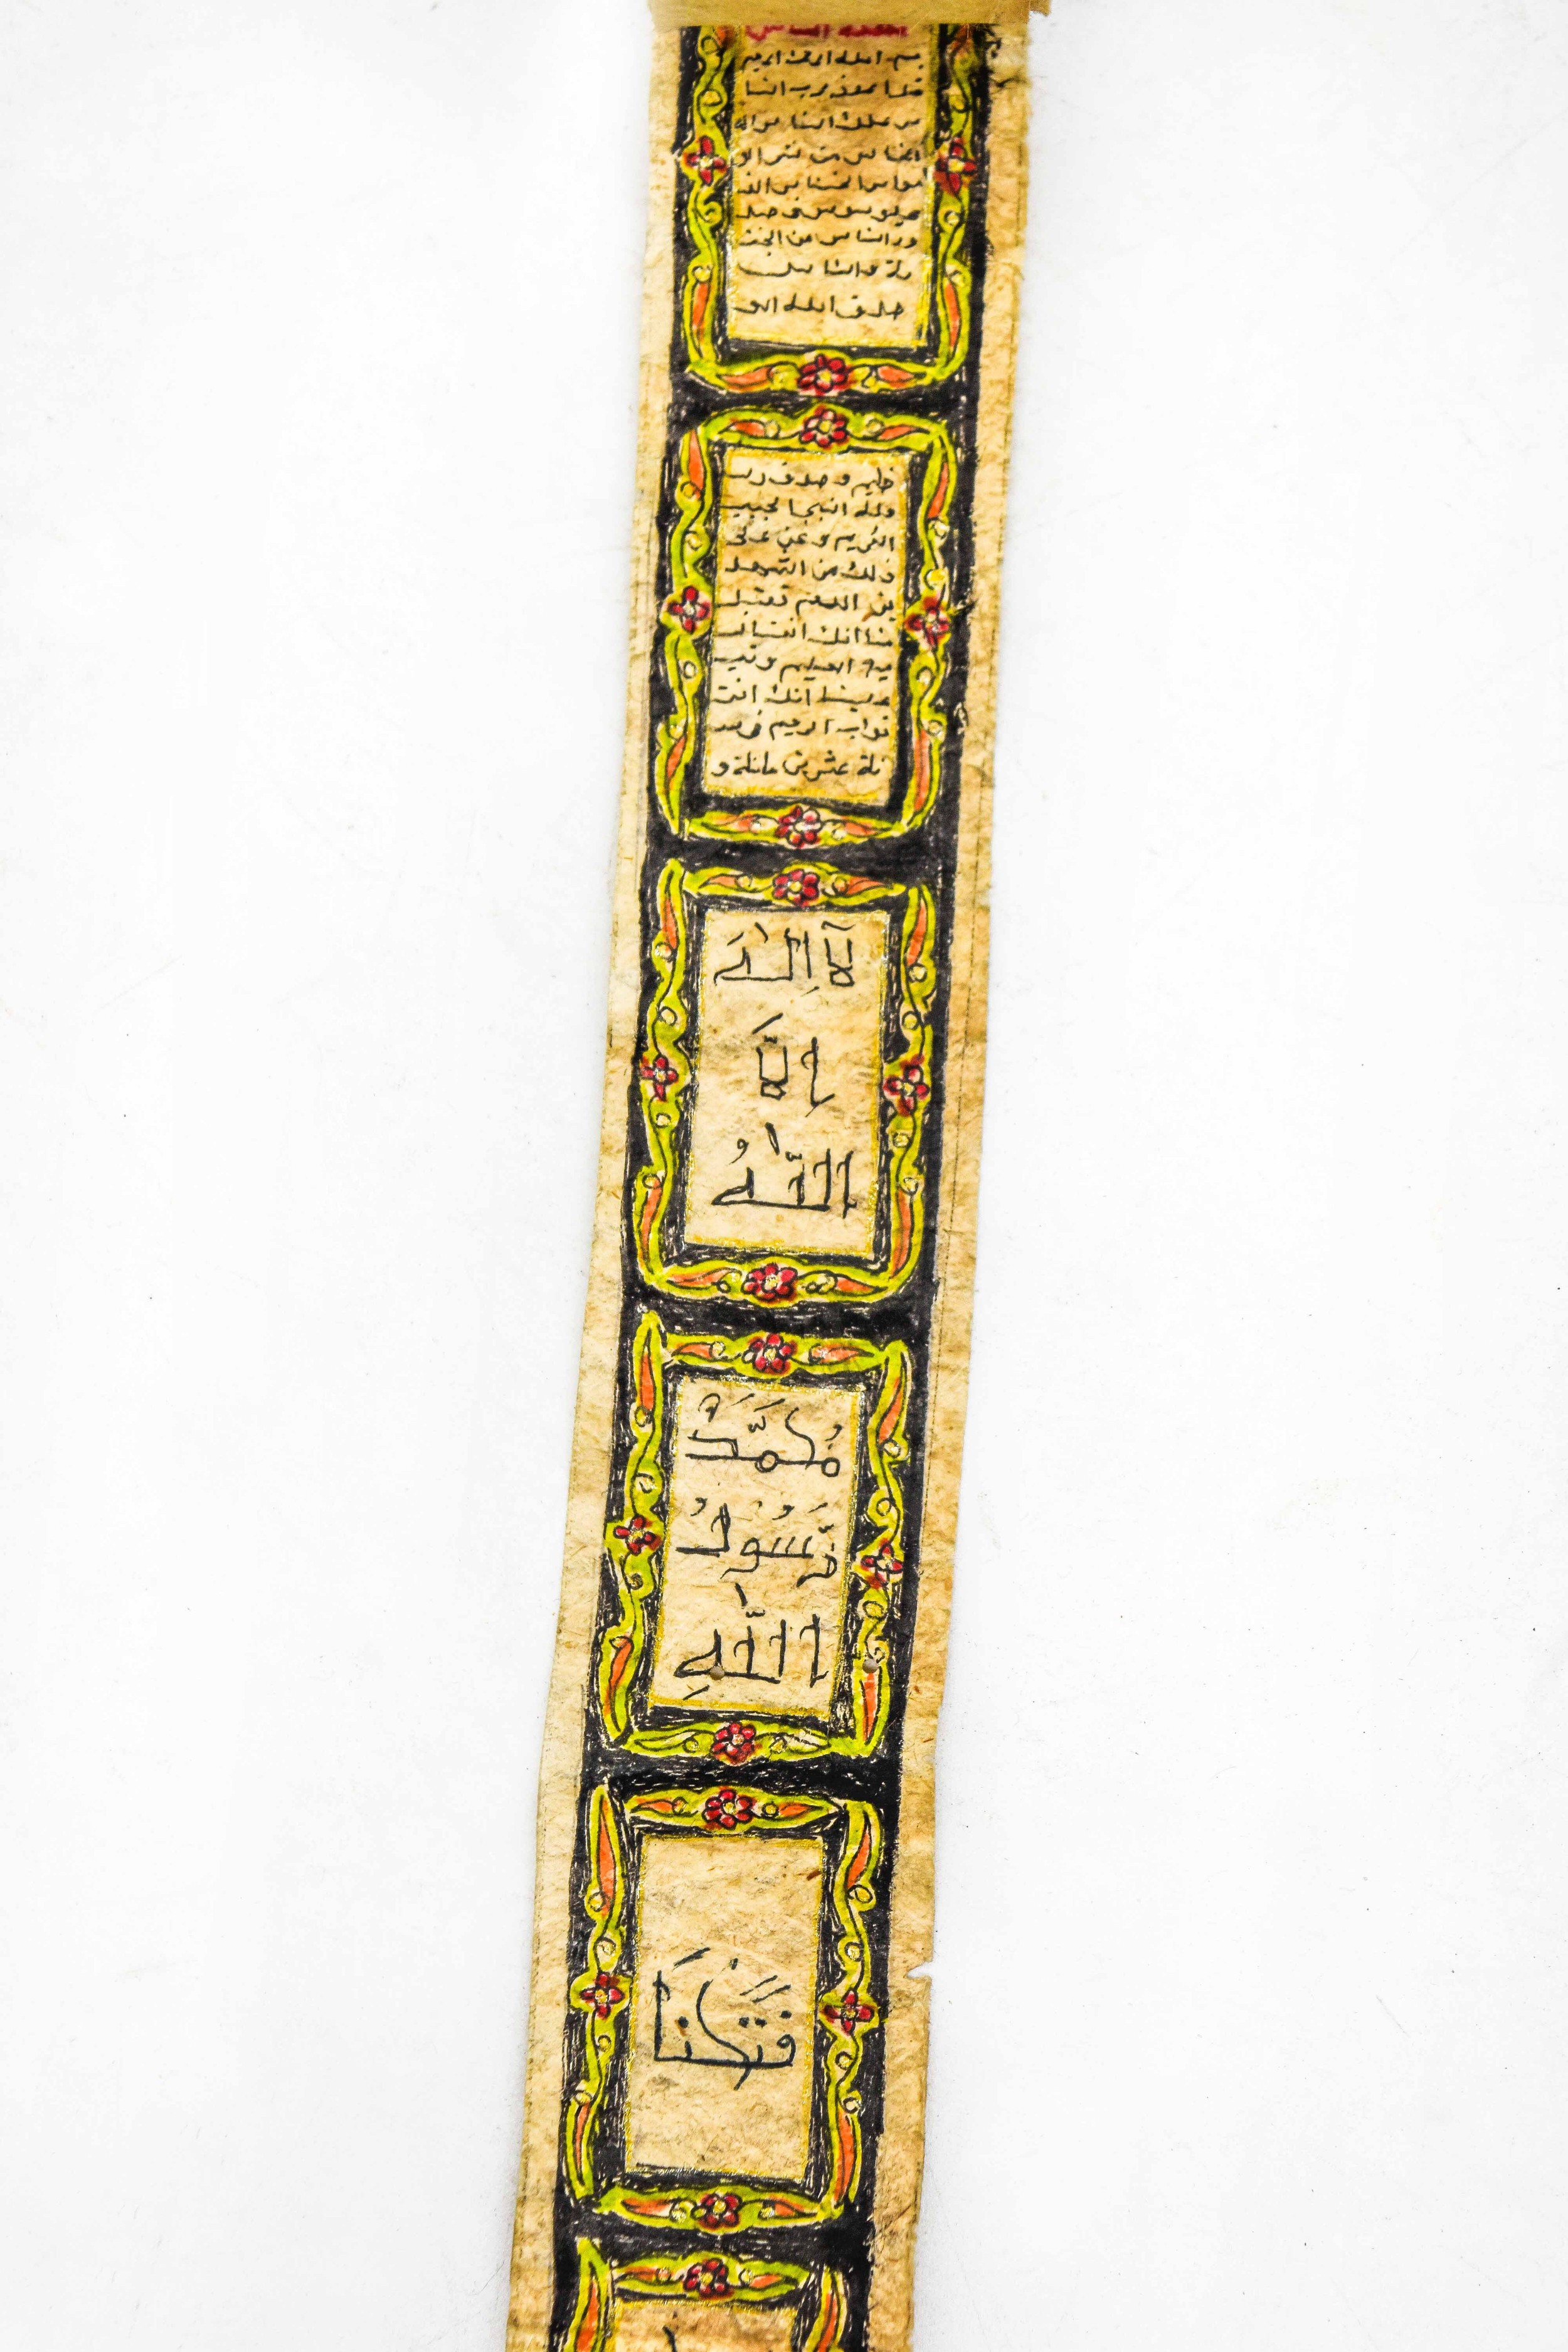 بسم الله الرحمن الرحيم
قل اعوذ برب النا
س ملك الناس اله
الناس من شر الو
سواس الخناس الذ
ي يوسوس في صد
ور الناس من الجنـ
ـة والناس
صدق الله العـ
ـظيم وصدق رسـ
الكريم و نحن على
ذلك من الشهد
ين اللهم تقبل
منا انك انت السـ
ميع العليم و تب
علينا انك انت
تواب الرحيم
لَآ اِلٰهَ
اِلَّا
اللّٰهُ
مُحَمَّدٌ
رَّسُولُ
اللّٰهِ
فَتَحْنَا